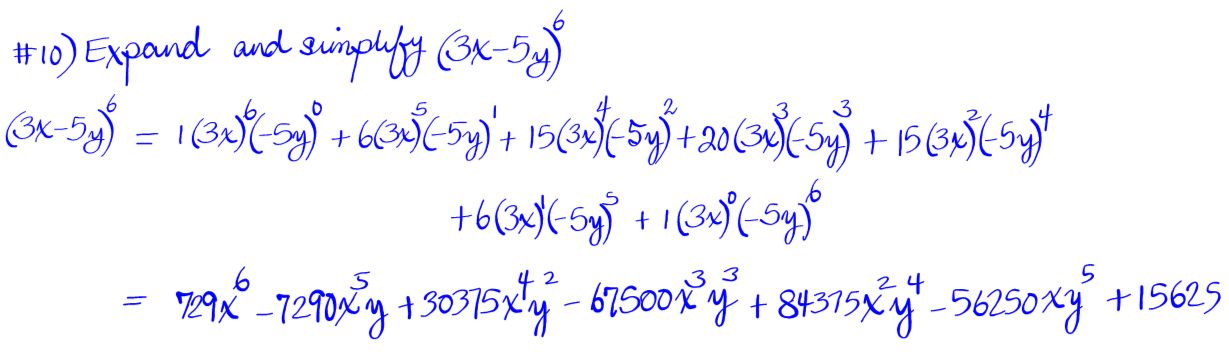 #10) Expand and simplify (3x-5y)⁶
(3x-5y)⁶ = 1(3x)⁶(-5y)⁰ + 6(3x)⁵(-5y)¹ + 15(3x)⁴(-5y)² + 20(3x)³(-5y)³ + 15(3x)²(-5y)⁴
+6(3x)¹(-5y)⁵ + 1(3x)⁰(-5y)⁶
= 729x⁶ - 7290x⁵y + 30375x⁴y² - 67500x³y³ + 84375x²y⁴ - 56250xy⁵ + 15625